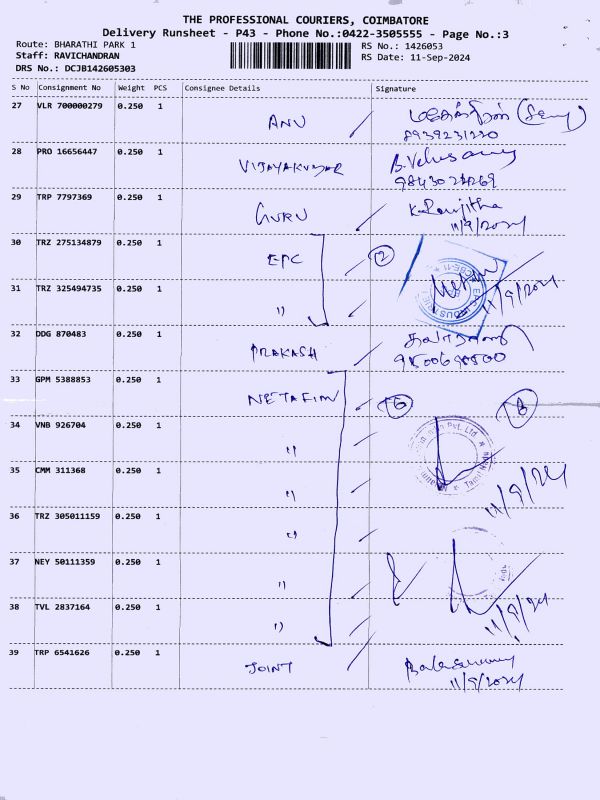 THE PROFESSIONAL COURIERS, COIMBATORE
Delivery Runsheet - P43 - Phone No.:0422-3505555 - Page No.:3
Route: BHARATHI PARK 1
Staff: RAVICHANDRAN
DRS No.: DCJB142605303
RS No.: 1426053
RS Date: 11-Sep-2024
S No Consignment No Weight PCS Consignee Details Signature
27 VLR 700000279 0.250 1 ANU
8939231220
28 PRO 16656447 0.250 1 VIJAYAKUMAR
29 TRP 7797369 0.250 1 GURU K.Ranjitha
11/9/2024
30 TRZ 275134879 0.250 1 EPC 2
31 TRZ 325494735 0.250 1 " 11/9/2024
32 DDG 870483 0.250 1 PRAKASH
33 GPM 5388853 0.250 1 NETAFIM 6
34 VNB 926704 0.250 1 "
35 CMM 311368 0.250 1 " 11/9/24
36 TRZ 305011159 0.250 1 "
37 NEY 50111359 0.250 1 "
38 TVL 2837164 0.250 1 " 11/9/24
39 TRP 6541626 0.250 1 JOINT
11/9/2024